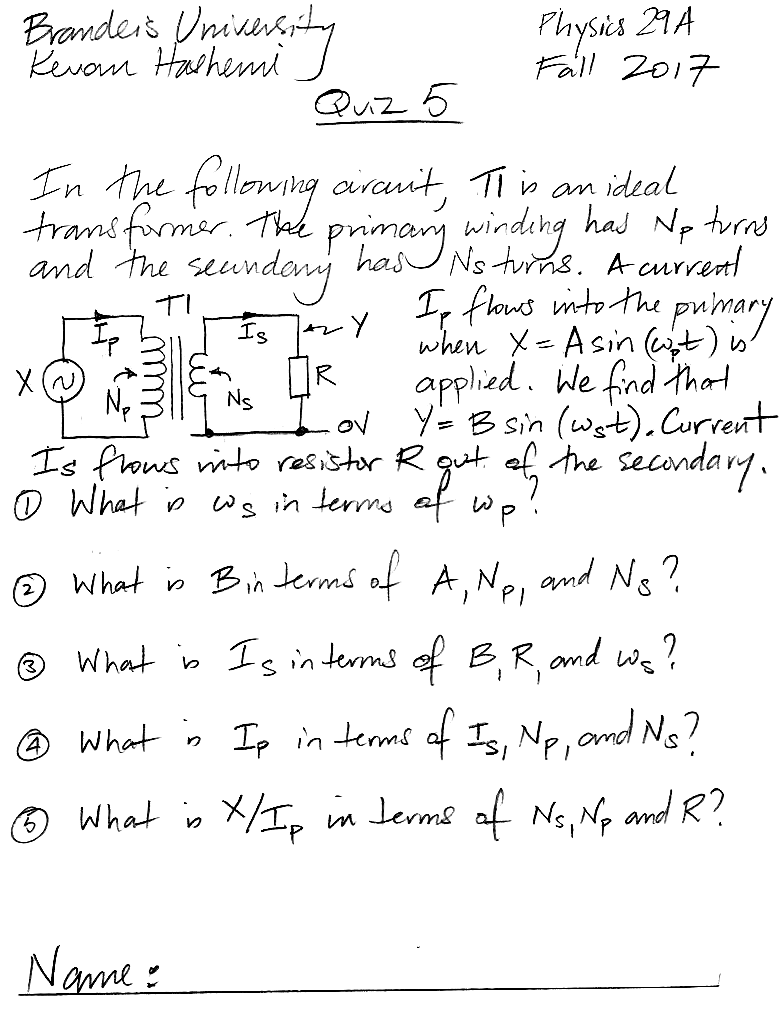 Brandeis University
Physics 29A
Kevan Hashemi
Fall 2017
Quiz 5
In the following circuit, T1 is an ideal
transformer. The primary winding has Np turns
and the secondary has Ns turns. A current
Ip flows into the primary
when X = A sin (ωpt) is
applied. We find that
Y = B sin (ωst). Current
T1
Ip
Is
Y
X
Np
Ns
R
0V
Is flows into resistor R out of the secondary.
① What is ωs in terms of ωp?
② What is B in terms of A, Np, and Ns?
③ What is Is in terms of B, R, and ωs?
④ What is Ip in terms of Is, Np, and Ns?
⑤ What is X/Ip in terms of Ns, Np and R?
Name: